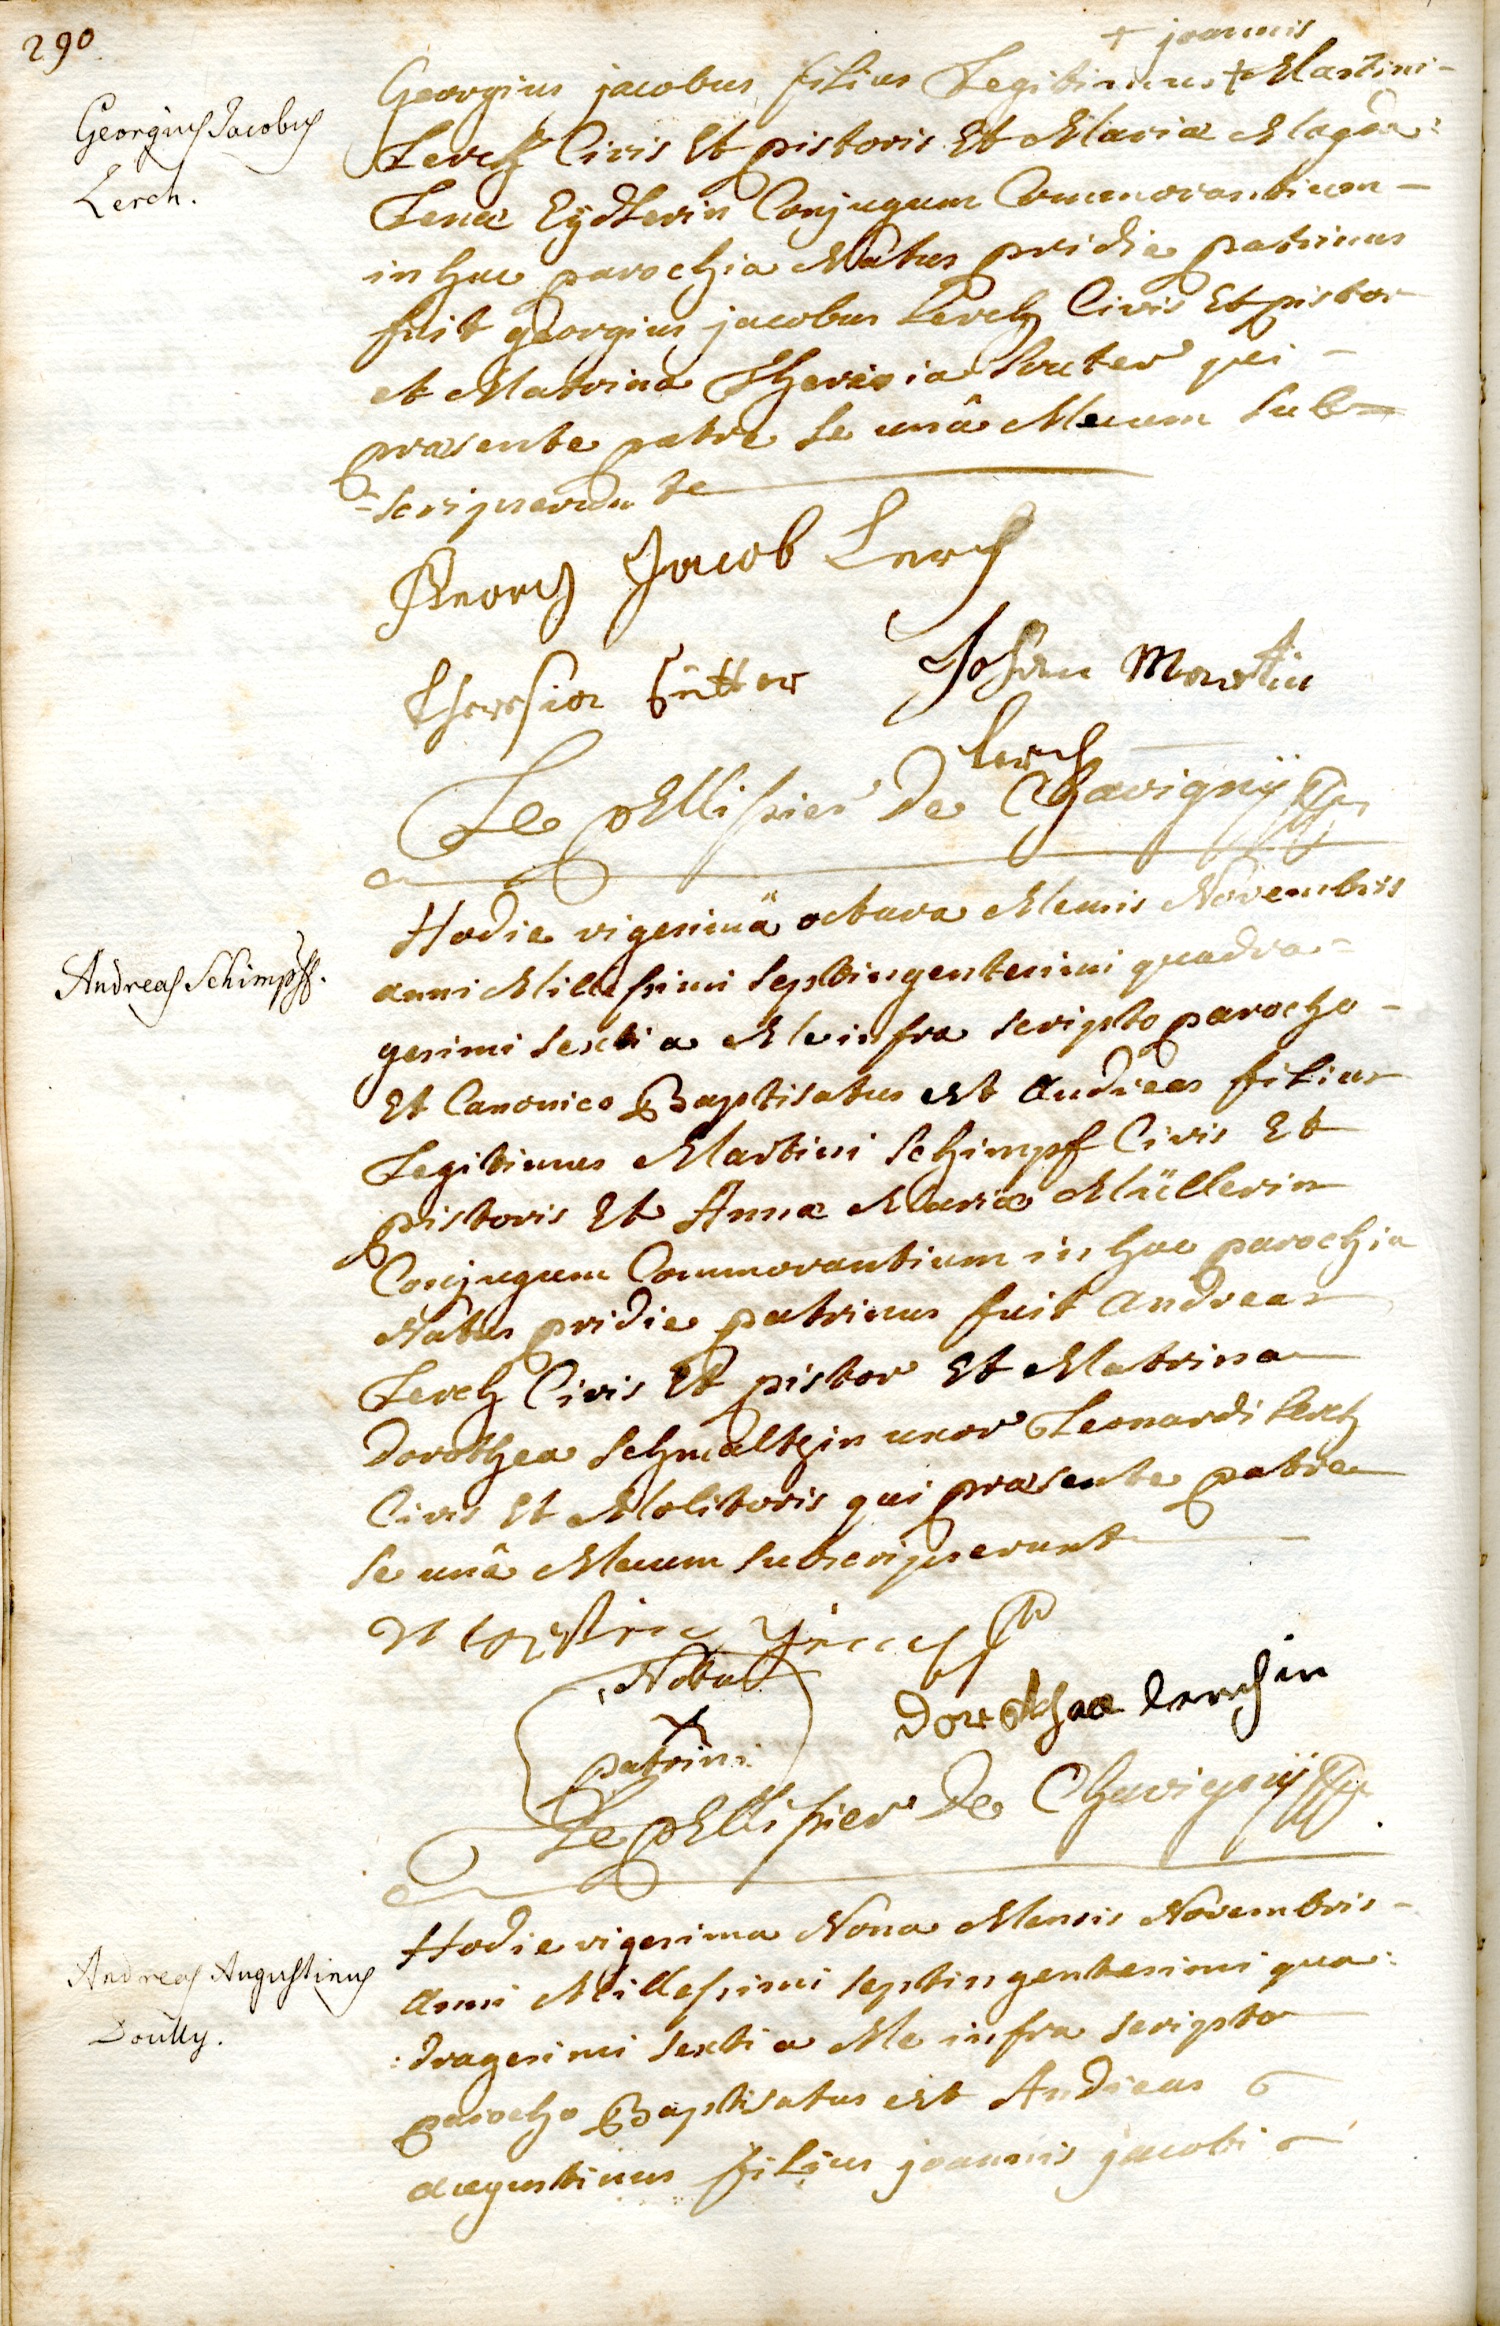 290
+ joannis
Georgius Jacobus
Lerch.
Georgius jacobus filius Legitimus + Martini -
Lerch Civis Et pistoris Et Mariæ Magda:
Lenæ Eydlerin Conjugum Commorantium -
in hac parochia Natus pridie patrinus
fuit georgius jacobus Lerch Civis Et pistor
et Matrina Theresia Suter qui -
præsente patre se unâ Mecum sub=
=scripserunte
Georg Jacob Lerch
Theresia Sutter Johan Martin
Lerch
Le pEllissier De Chavignÿ
Andreas Schimpff.
Hodie vigesimâ octava Mensis Novembris
anni Millessimi septingentesimi quadra=
gesimi sexti a Me infra scripto parocho -
Et Canonico Baptisatus est Andreas filius
Legitimus Martini Schimpf Civis Et
pistoris Et Annæ Mariæ Müllerin
Conjugum Commorantium in hac parochia
Natus pridie patrinus fuit andreas
Lerch Civis Et pistor Et Matrina
Dorothea Schmaltzin uxor Leonardi Lerch
Civis Et Molitoris qui præsente patre
se unâ Mecum subscripserunt
Nota
X
patrini
Dorothea Lerchin
Le pEllissier De Chavignÿ
Andreas Augustinus
Doully.
Hodie vigesima Nona Mensis Novembris -
Anni Millessimi septingentesimi qua:
:dragesimi sexti a Me infra scripto
parocho Baptisatus est Andreas
augustinus filius joannis jacobi